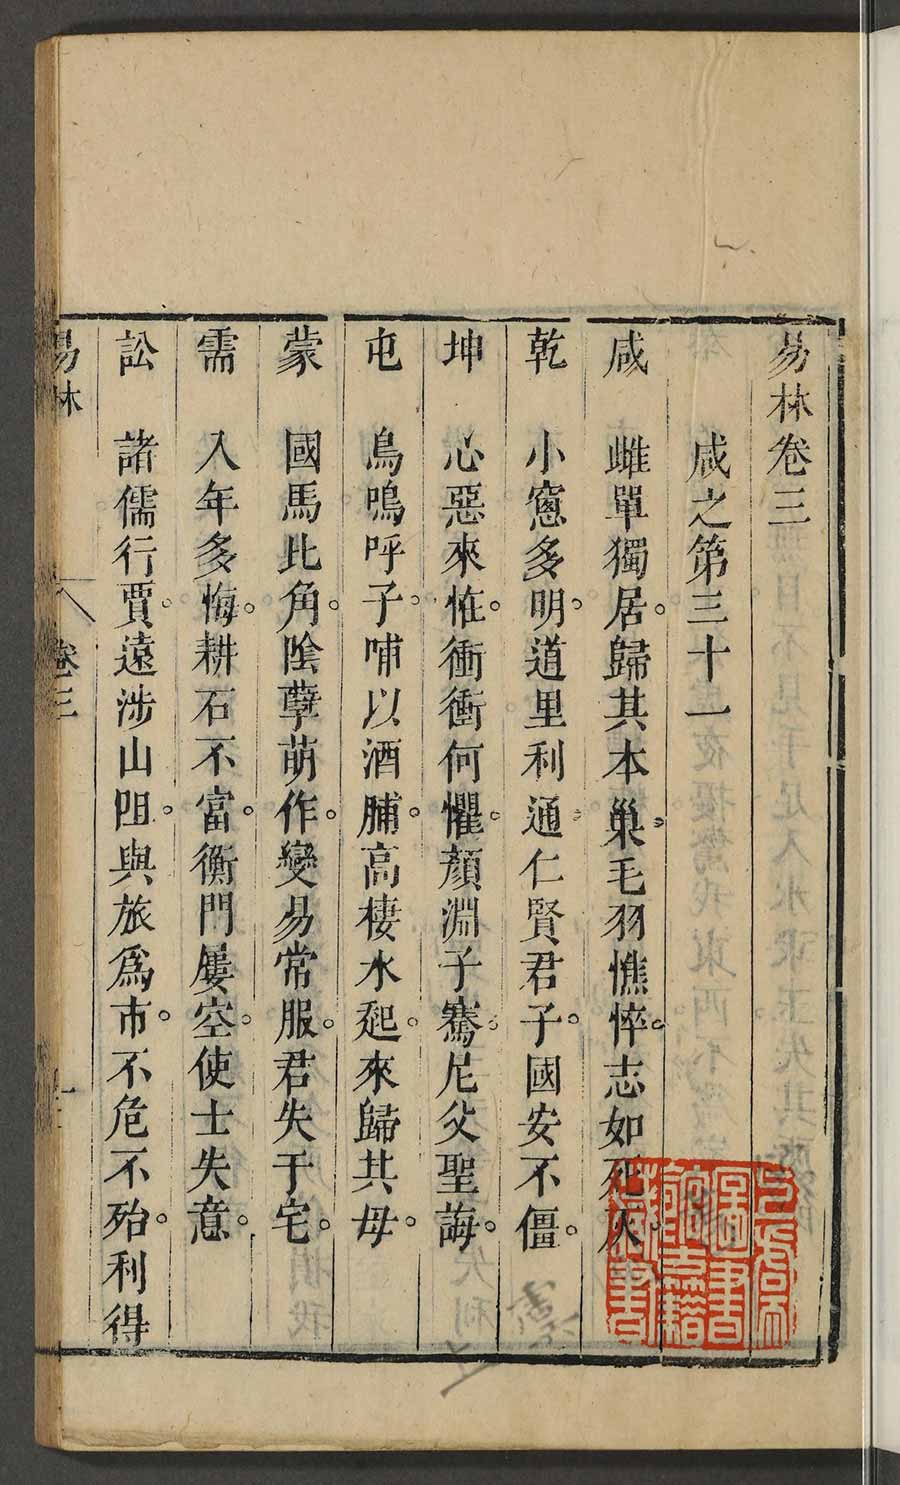 易林卷三
咸之第三十一
咸 雌單獨居。歸其本巢。毛羽憔悴。志如死灰。
乾 小窻多明。道里利通。仁賢君子。國安不僵。
坤 心惡來恠。衝衝何懼。顏淵子騫。尼父聖誨。
屯 鳥鳴呼子。哺以酒脯。高棲水𧺫。來歸其母。
蒙 國馬北角。陰孽萌作。變易常服。君失于宅。
需 入年多悔。耕石不富。衡門屢空。使士失意。
訟 諸儒行賈。遠涉山阻。與旅爲市。不危不殆。利得
易林 卷三